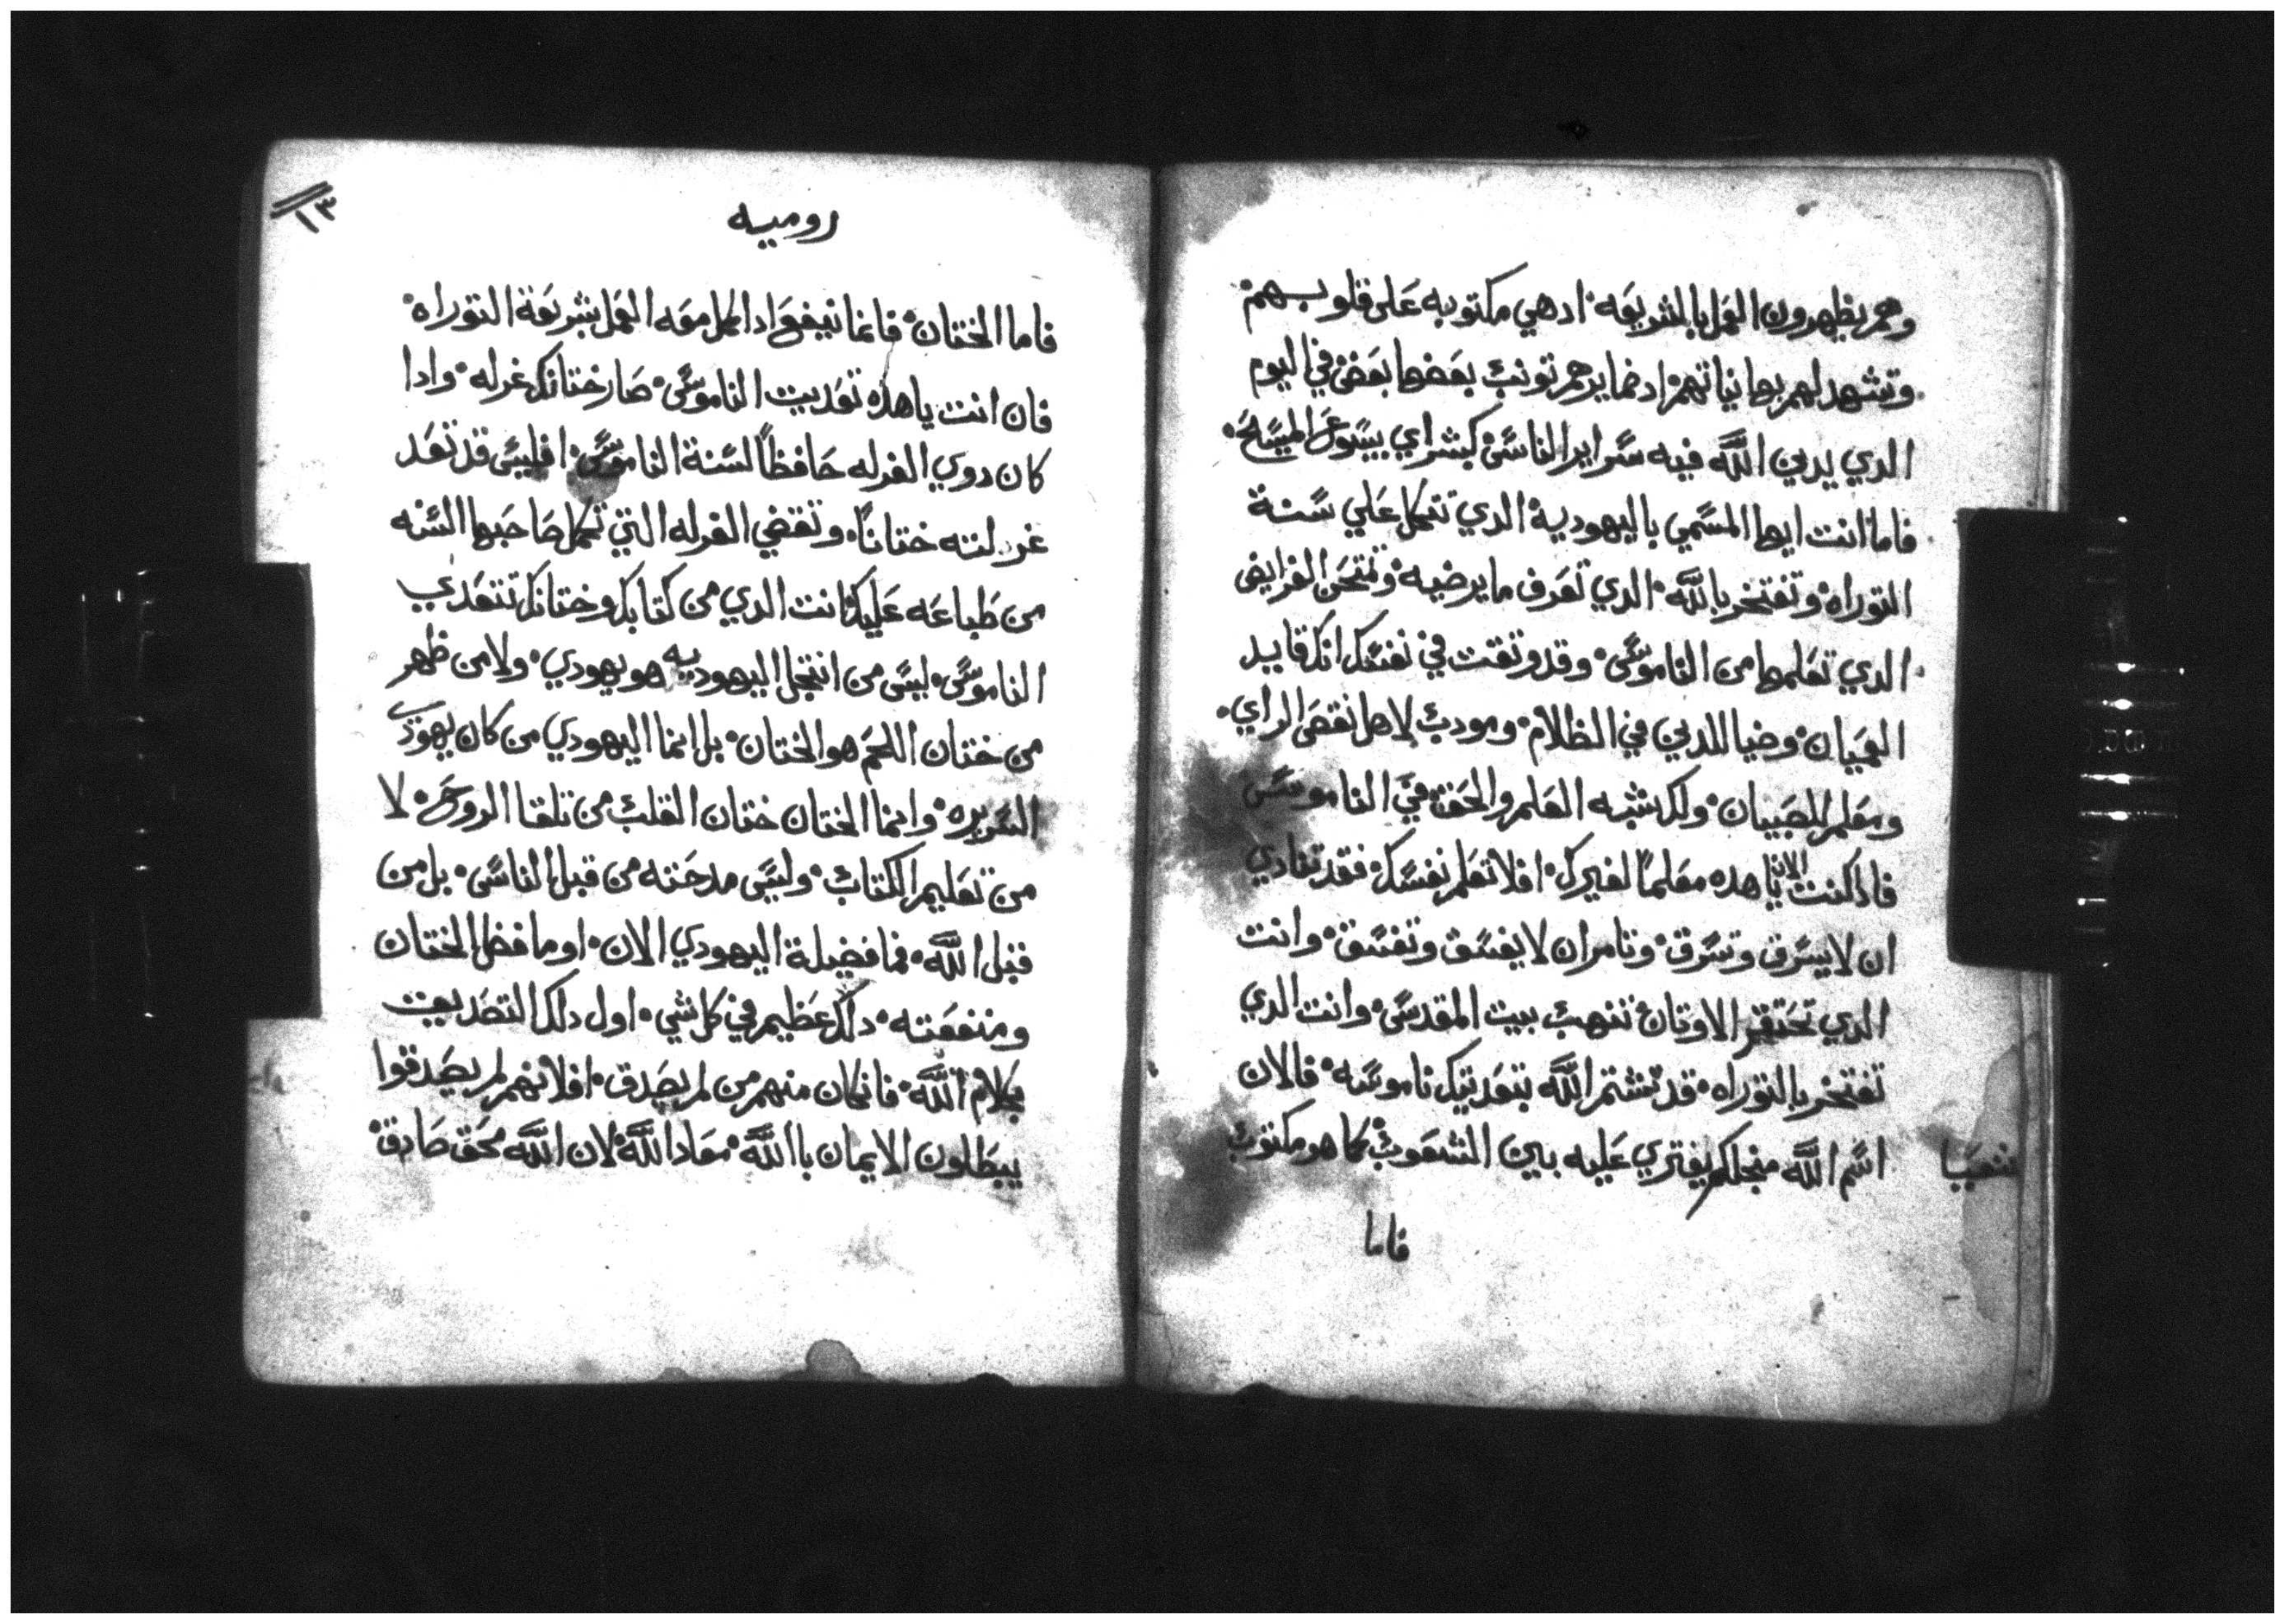 وهم يظهرون العمل بالشريعه ادهي مكتوبه على قلوبهم
وتشهد لهم بها نياتهم اد ضمايرهم تونب بعضها بعض في اليوم
الدي يدين الله فيه سراير الناس كبشراي بيسوع المسيح
فاما انت ايها المسمي باليهودية الدي تتكل علي سنة
التوراه وتفتخر بالله الدي تعرف ما يرضيه وتمتحن الفرايض
الدي تعلمها من الناموس وقد وثقت في نفسك انك قايد
العميان وضيا للدين في الظلام ومودب لاهل نقص الراي
ومعلم للصبيان ولك شبه العلم والحق في الناموس
فاد كنت الان ياهده معلما لغيرك افلا تعلم نفسك فقد تنادي
ان لا يسرق وتسرق وتامر ان لا يفسق وتفسق وانت
الدي تحتقر الاوتان تنهب بيت المقدس وانت الدي
تفتخر بالتوراه قد تشتم الله بتعديك ناموسه فالان
اسم الله منجلكم يفتري عليه بين الشعوب كما هو مكتوب
شعيا
فاما
١٣
روميه
فاما الختان فانما ينفع ادا كمل معه العمل بشريعة التوراه
فان انت ياهده تعديت الناموس صار ختانك غرله وادا
كان دوي الغرله حافظا لسنة الناموس افليس قد تعد
غرلته ختانا وتقضي الغرله التي تكمل صاحبها السنه
من طباعه عليك انت الدي من كتابك وختانك تتعدي
الناموس ليس من انتحل اليهوديه هو يهودي ولا من ظهر
من ختان اللحم هو الختان بل انما اليهودي من كان يهودي
السريره وانما الختان ختان القلب من تلقا الروح لا
من تعليم الكتاب وليس مدحته من قبل الناس بل من
قبل الله فما فضيلة اليهودي الان او ما فضل الختان
ومنفعته دلك عظيم في كل شي اول دلك التصديق
بكلام الله فان كان منهم من لم يصدق افلانهم لم يصدقوا
يبطلون الايمان باالله معاد الله لان الله محق صادق